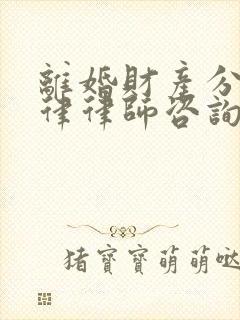 離婚財產分
律律師咨詢
猪寶寶萌萌噠